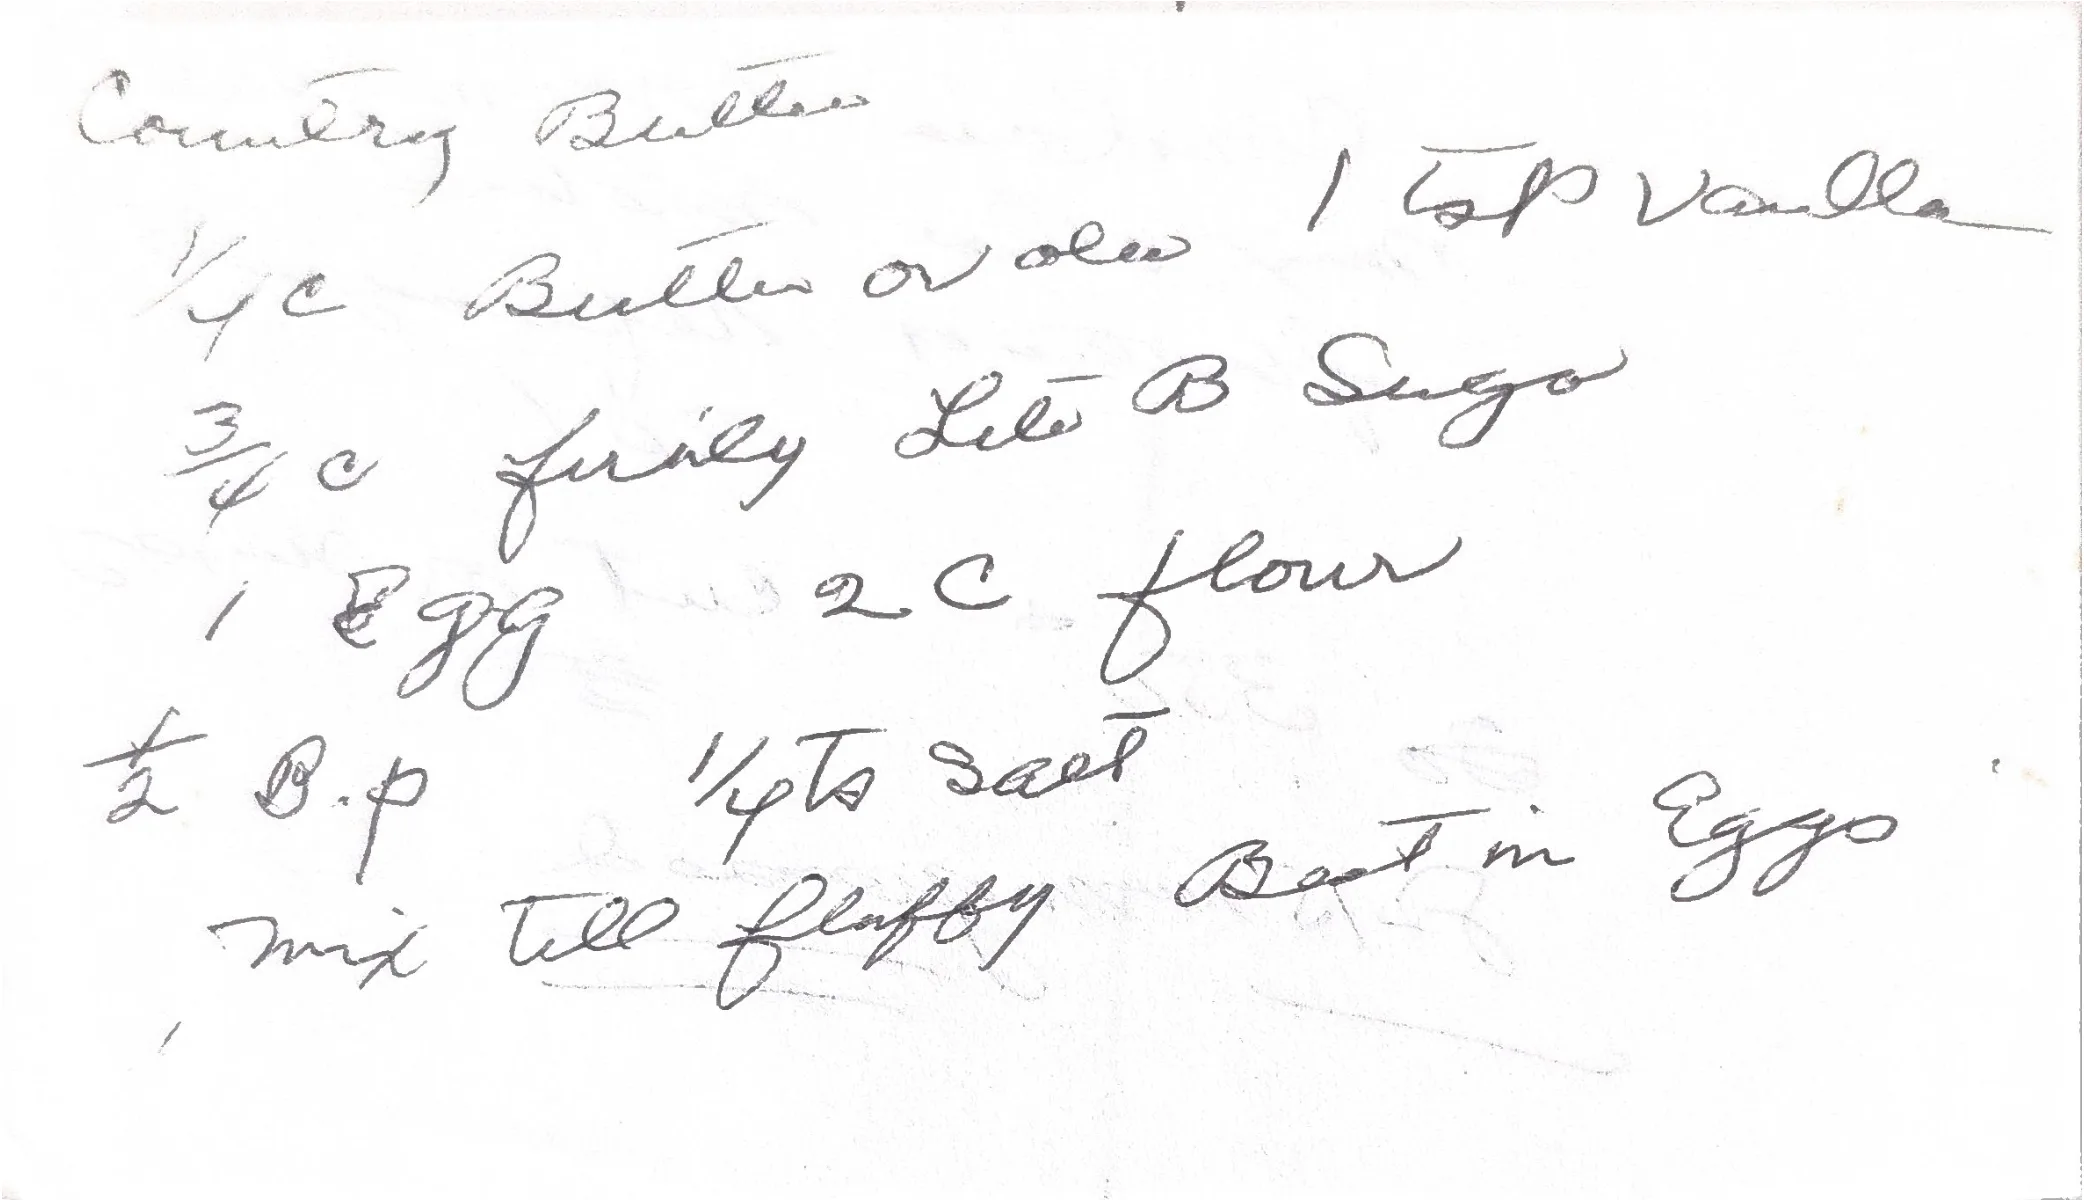 Country Butter
1 tsp Vanilla
1/4 c Butter or oleo
3/4 c firmly Lite B Sugar
1 Egg 2 C flour
1/2 B.p 1/4 ts Salt
mix till fluffy Beat in Eggs